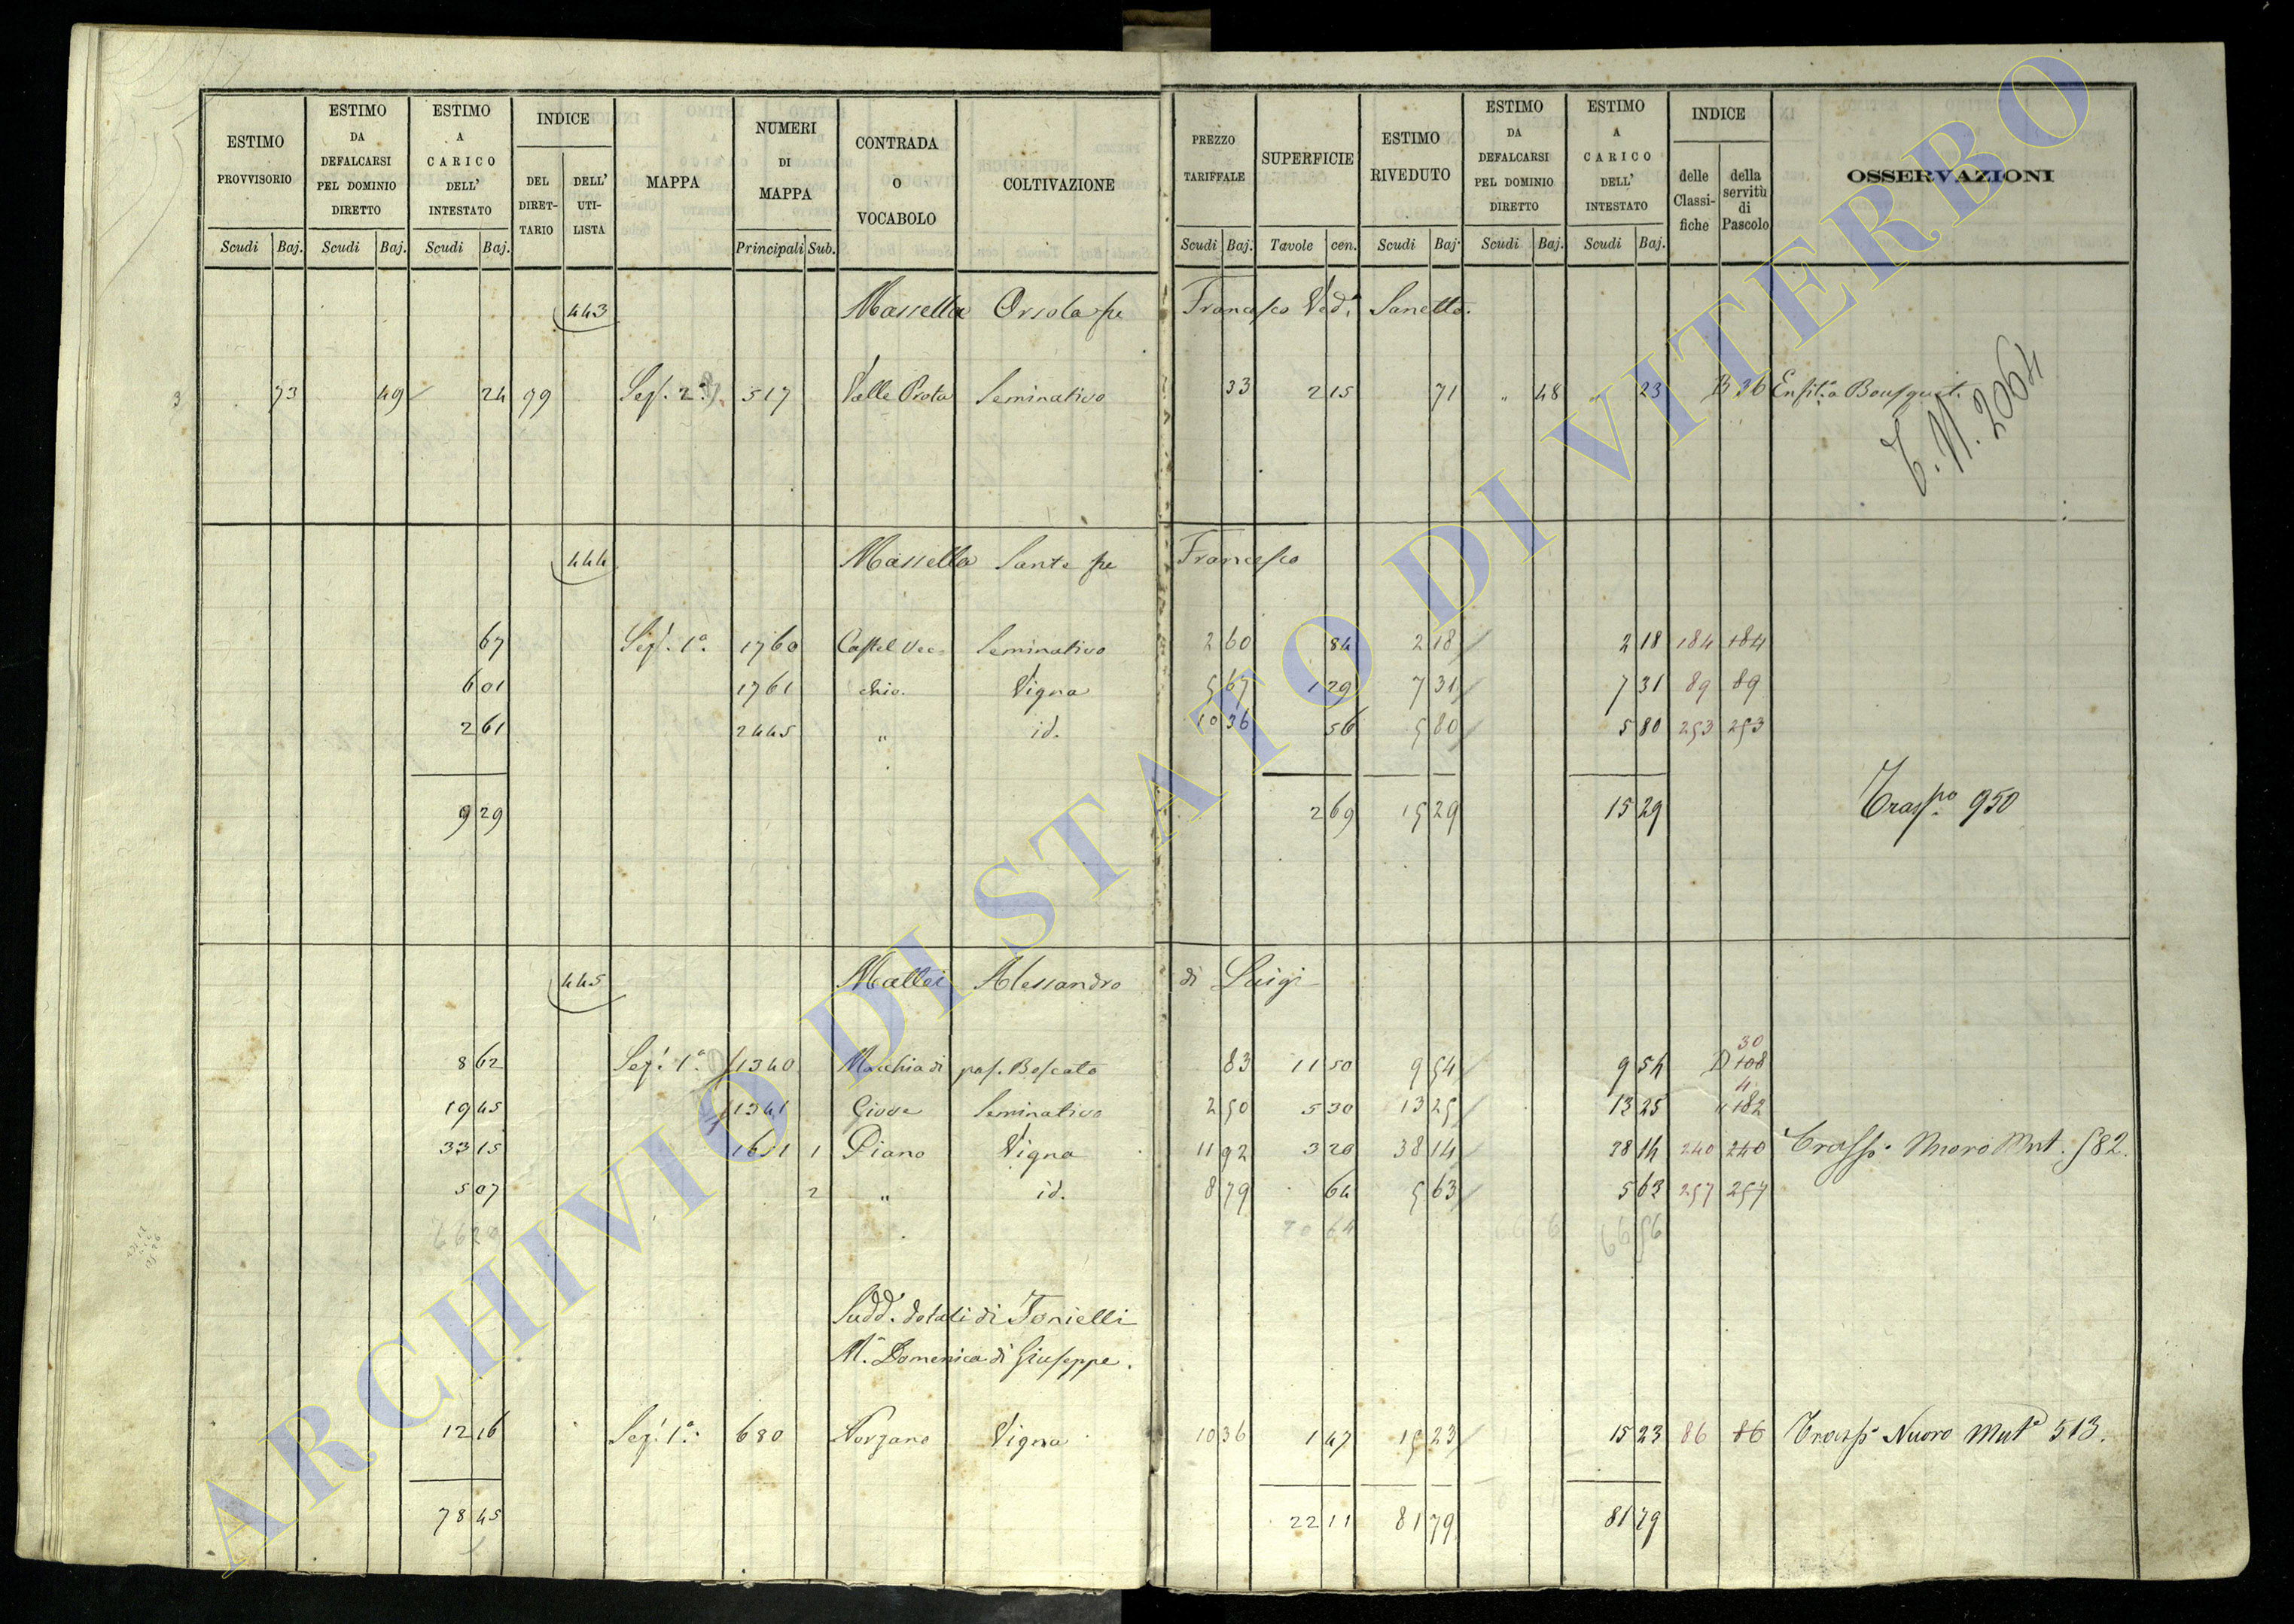 ESTIMO PROVVISORIO Scudi Baj.
ESTIMO DA DEFALCARSI PEL DOMINIO DIRETTO Scudi Baj.
ESTIMO A CARICO DELL' INTESTATO Scudi Baj.
INDICE DEL DIRET- TARIO DELL' UTI- LISTA
MAPPA
NUMERI DI MAPPA Principali Sub.
CONTRADA O VOCABOLO
COLTIVAZIONE
PREZZO TARIFFALE Scudi Baj.
SUPERFICIE Tavole cen.
ESTIMO RIVEDUTO Scudi Baj.
ESTIMO DA DEFALCARSI PEL DOMINIO DIRETTO Scudi Baj.
ESTIMO A CARICO DELL' INTESTATO Scudi Baj.
INDICE delle Classi- fiche della servitù di Pascolo
OSSERVAZIONI
443 Massella Orsola fu Francesco Ved.ᵃ Sanetto.
3 73 49 24 79 Sez. 2ª 517 Valle Prota Seminativo 33 2 15 71 " 48 23 B 36 Enfit.ª a
T. N. 2064
444 Massella Sante fu Francesco
67 Sez. 1ª 1760 Castel Vec- Seminativo 2 60 84 2 18 2 18 184 184
6 01 1761 chio. Vigna 5 67 1 29 7 31 7 31 89 89
2 61 2445 " id. 10 36 56 5 80 5 80 253 253
9 29 2 69 15 29 15 29 Trasp.º 950
445 Mattei Alessandro di Luigi
30
8 62 Sez. 1ª 1340 Macchia di pas. Boscato 83 11 50 9 54 9 54 D 108
4
19 45 1341 Giove Seminativo 2 50 5 30 13 25 13 25 " 182
33 15 1611 1 Piano Vigna 11 92 3 20 38 14 38 14 240 240 Trasp.º Nuovo Mut. 582.
5 07 2 " id. 8 79 64 5 63 5 63 257 257
66 29 20 64 66 56
Sudd. dotali di Tonielli
M.ª Domenica di Giuseppe.
12 16 Sez. 1ª 680 Norzano Vigna 10 36 1 47 15 23 15 23 86 86 Trasp.º Nuovo Mut.ª 513.
78 45 22 11 81 79 81 79
ARCHIVIO DI STATO DI VITERBO